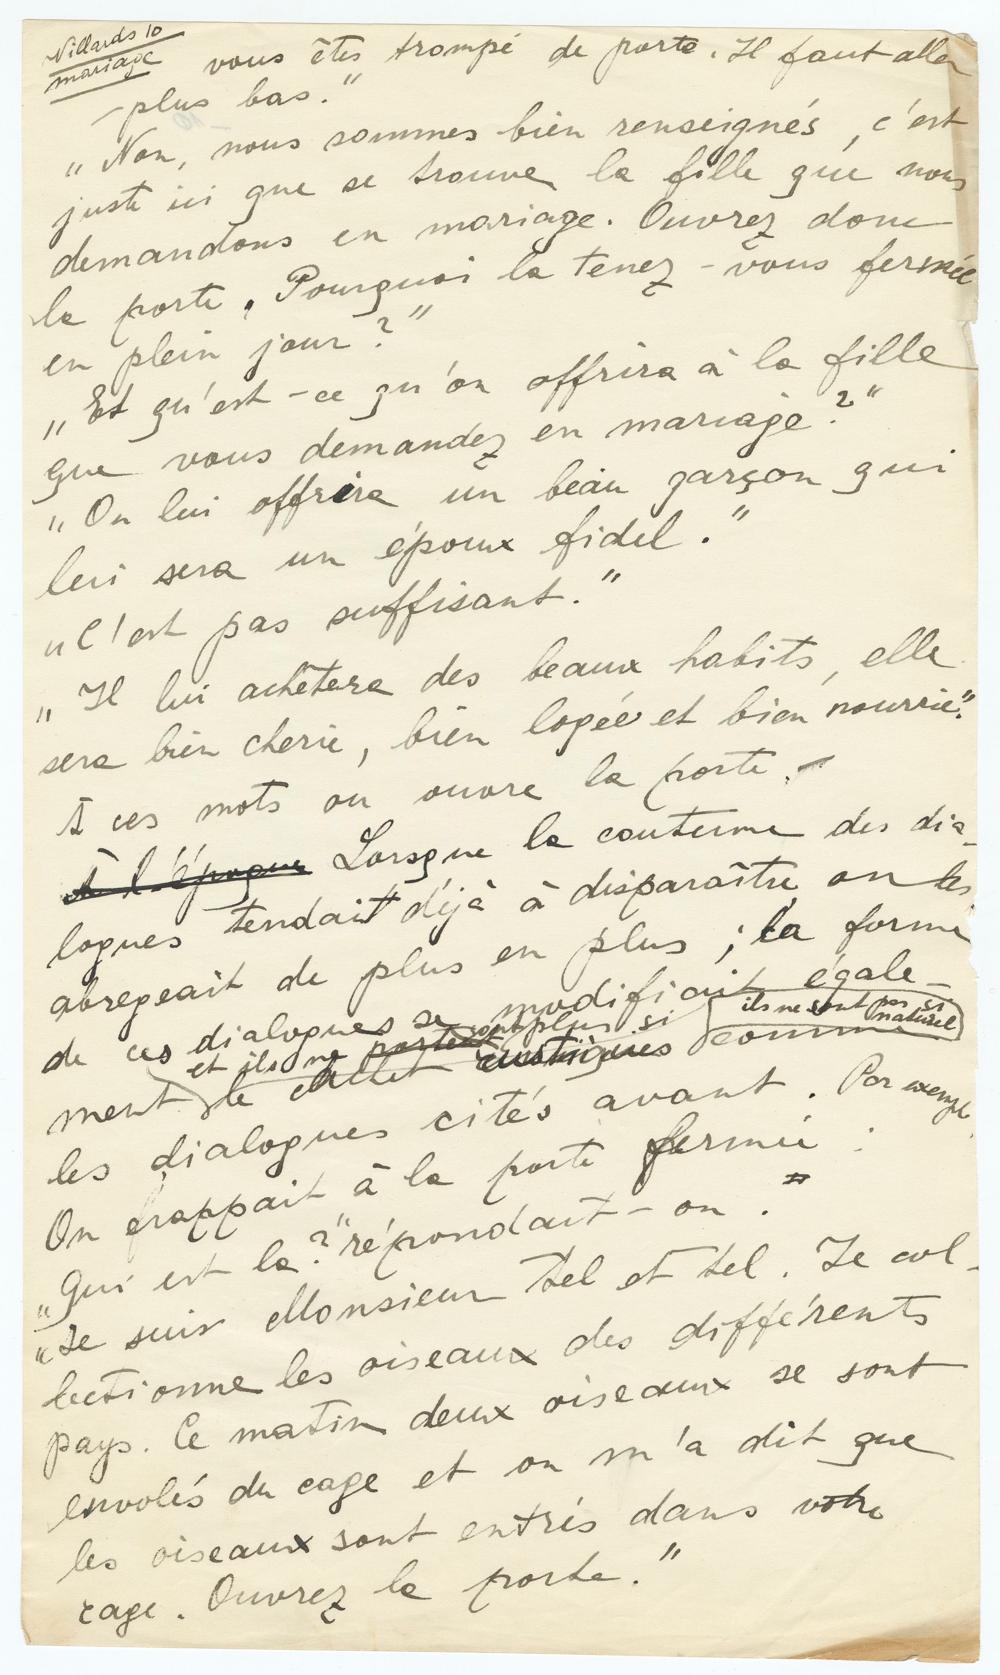 Villards 10
mariage
vous êtes trompé de porte. Il faut aller
plus bas."
"Non, nous sommes bien renseignés, c'est
juste ici que se trouve la fille que nous
demandons en mariage. Ouvrez donc
la porte. Pourquoi la tenez-vous fermée
en plein jour?"
"Et qu'est-ce qu'on offrira à la fille
que vous demandez en mariage?"
"On lui offrira un beau garçon qui
lui sera un époux fidel."
"C'est pas suffisant."
"Il lui achètera des beaux habits, elle
sera bien cherie, bien logée et bien nourrie."
A ces mots on ouvre la porte.
A l'époque Lorsque la coutume des dia-
logues tendait déjà à disparaître on les
abregeait de plus en plus; la forme
de ces dialogues se modifiait égale-
et ils ne sont plus si ils ne sont pas si naturel
ment comme
les dialogues cités avant. Par exemple
On frappait à la porte fermée:
"Qui est la?" répondait-on.
"Je suis Monsieur tel et tel. Je col-
lectionne les oiseaux des différents
pays. Ce matin deux oiseaux se sont
envolés du cage et on m'a dit que
les oiseaux sont entrés dans votre
cage. Ouvrez la porte."